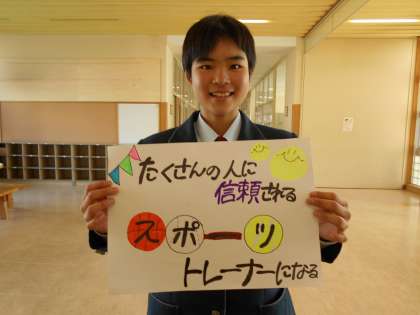 たくさんの人に
信頼される
スポーツ
トレーナーになる